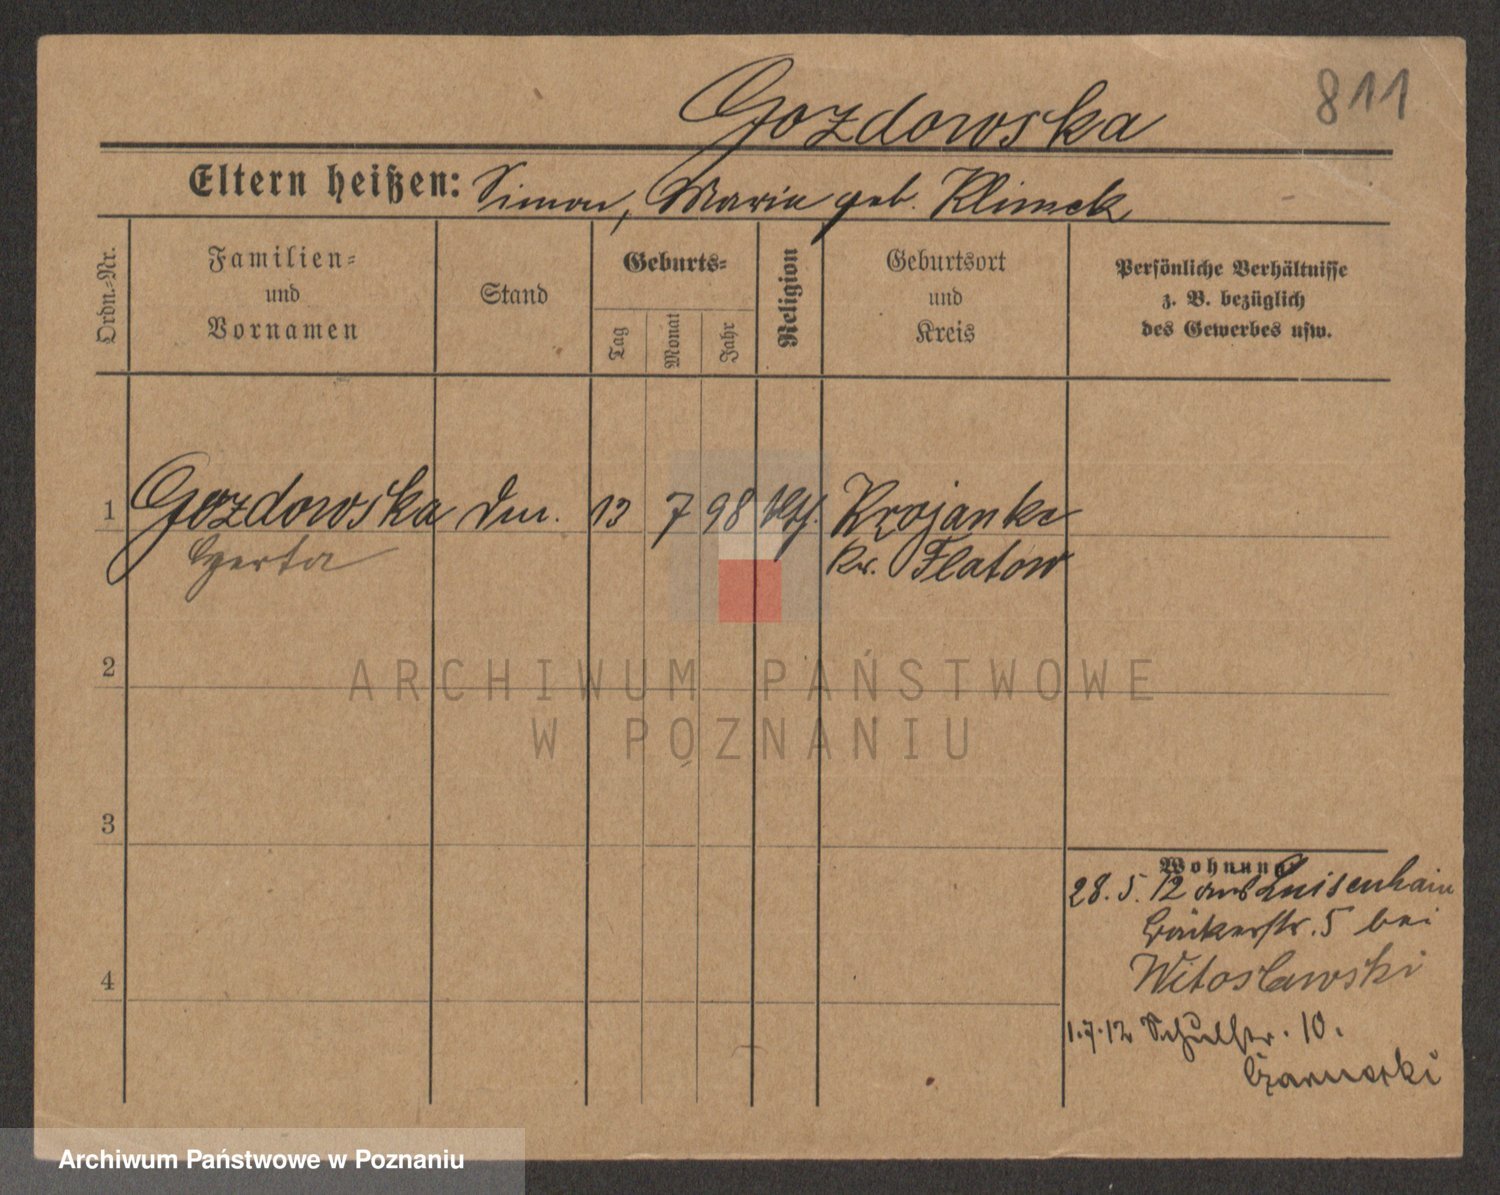 811
Gozdowska
Eltern heißen: Simon, Maria geb. Klimek
Ordn.-Nr.
Familien-
und
Vornamen
Stand
Geburts-
Tag
Monat
Jahr
Religion
Geburtsort
und
Kreis
Persönliche Verhältnisse
z. B. bezüglich
des Gewerbes usw.
1 Gozdowska 13 7 98 kth. Krojanke
Kr. Flatow
2
ARCHIWUM PAŃSTWOWE
W POZNANIU
3
4
Wohnung
28. 5. 12 aus Luisenhain
Bäckerstr. 5 bei
Witosławski
1.7.12 Schulstr. 10.
Archiwum Państwowe w Poznaniu